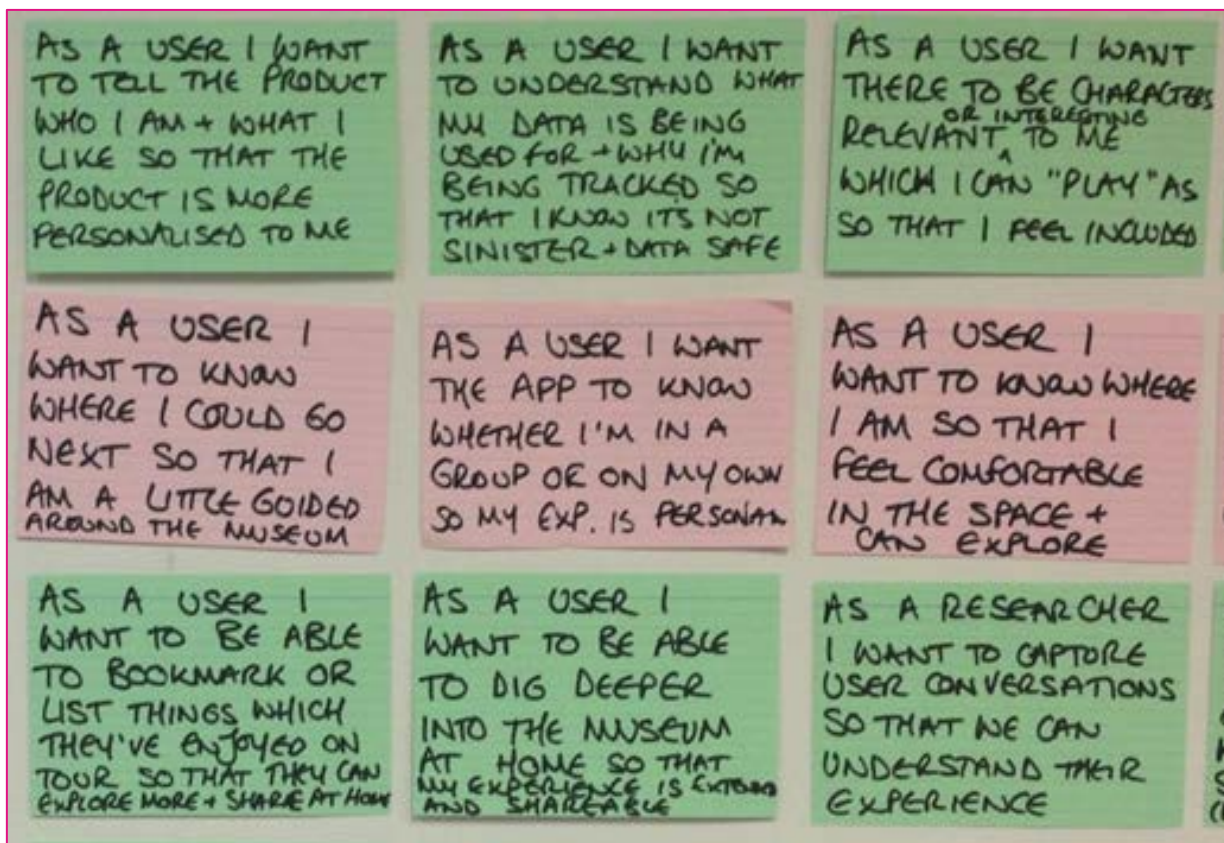 AS A USER I WANT
TO TELL THE PRODUCT
WHO I AM + WHAT I
LIKE SO THAT THE
PRODUCT IS MORE
PERSONALISED TO ME
AS A USER I WANT
TO UNDERSTAND WHAT
MY DATA IS BEING
USED FOR + WHY I'M
BEING TRACKED SO
THAT I KNOW ITS NOT
SINISTER + DATA SAFE
AS A USER I WANT
THERE TO BE CHARACTERS
OR INTERESTING
RELEVANT ^ TO ME
WHICH I CAN "PLAY" AS
SO THAT I FEEL INCLUDED
AS A USER I
WANT TO KNOW
WHERE I COULD GO
NEXT SO THAT I
AM A LITTLE GOIDED
AROUND THE MUSEUM
AS A USER I WANT
THE APP TO KNOW
WHETHER I'M IN A
GROUP OR ON MY OWN
SO MY EXP. IS PERSONAL
AS A USER I
WANT TO KNOW WHERE
I AM SO THAT I
FEEL COMFORTABLE
IN THE SPACE +
CAN EXPLORE
AS A USER I
WANT TO BE ABLE
TO BOOKMARK OR
LIST THINGS WHICH
THEY'VE ENJOYED ON
TOUR SO THAT THEY CAN
EXPLORE MORE + SHARE AT HOME
AS A USER I
WANT TO BE ABLE
TO DIG DEEPER
INTO THE MUSEUM
AT HOME SO THAT
MY EXPERIENCE IS EXTENDED
AND SHAREABLE
AS A RESEARCHER
I WANT TO CAPTURE
USER CONVERSATIONS
SO THAT WE CAN
UNDERSTAND THEIR
EXPERIENCE